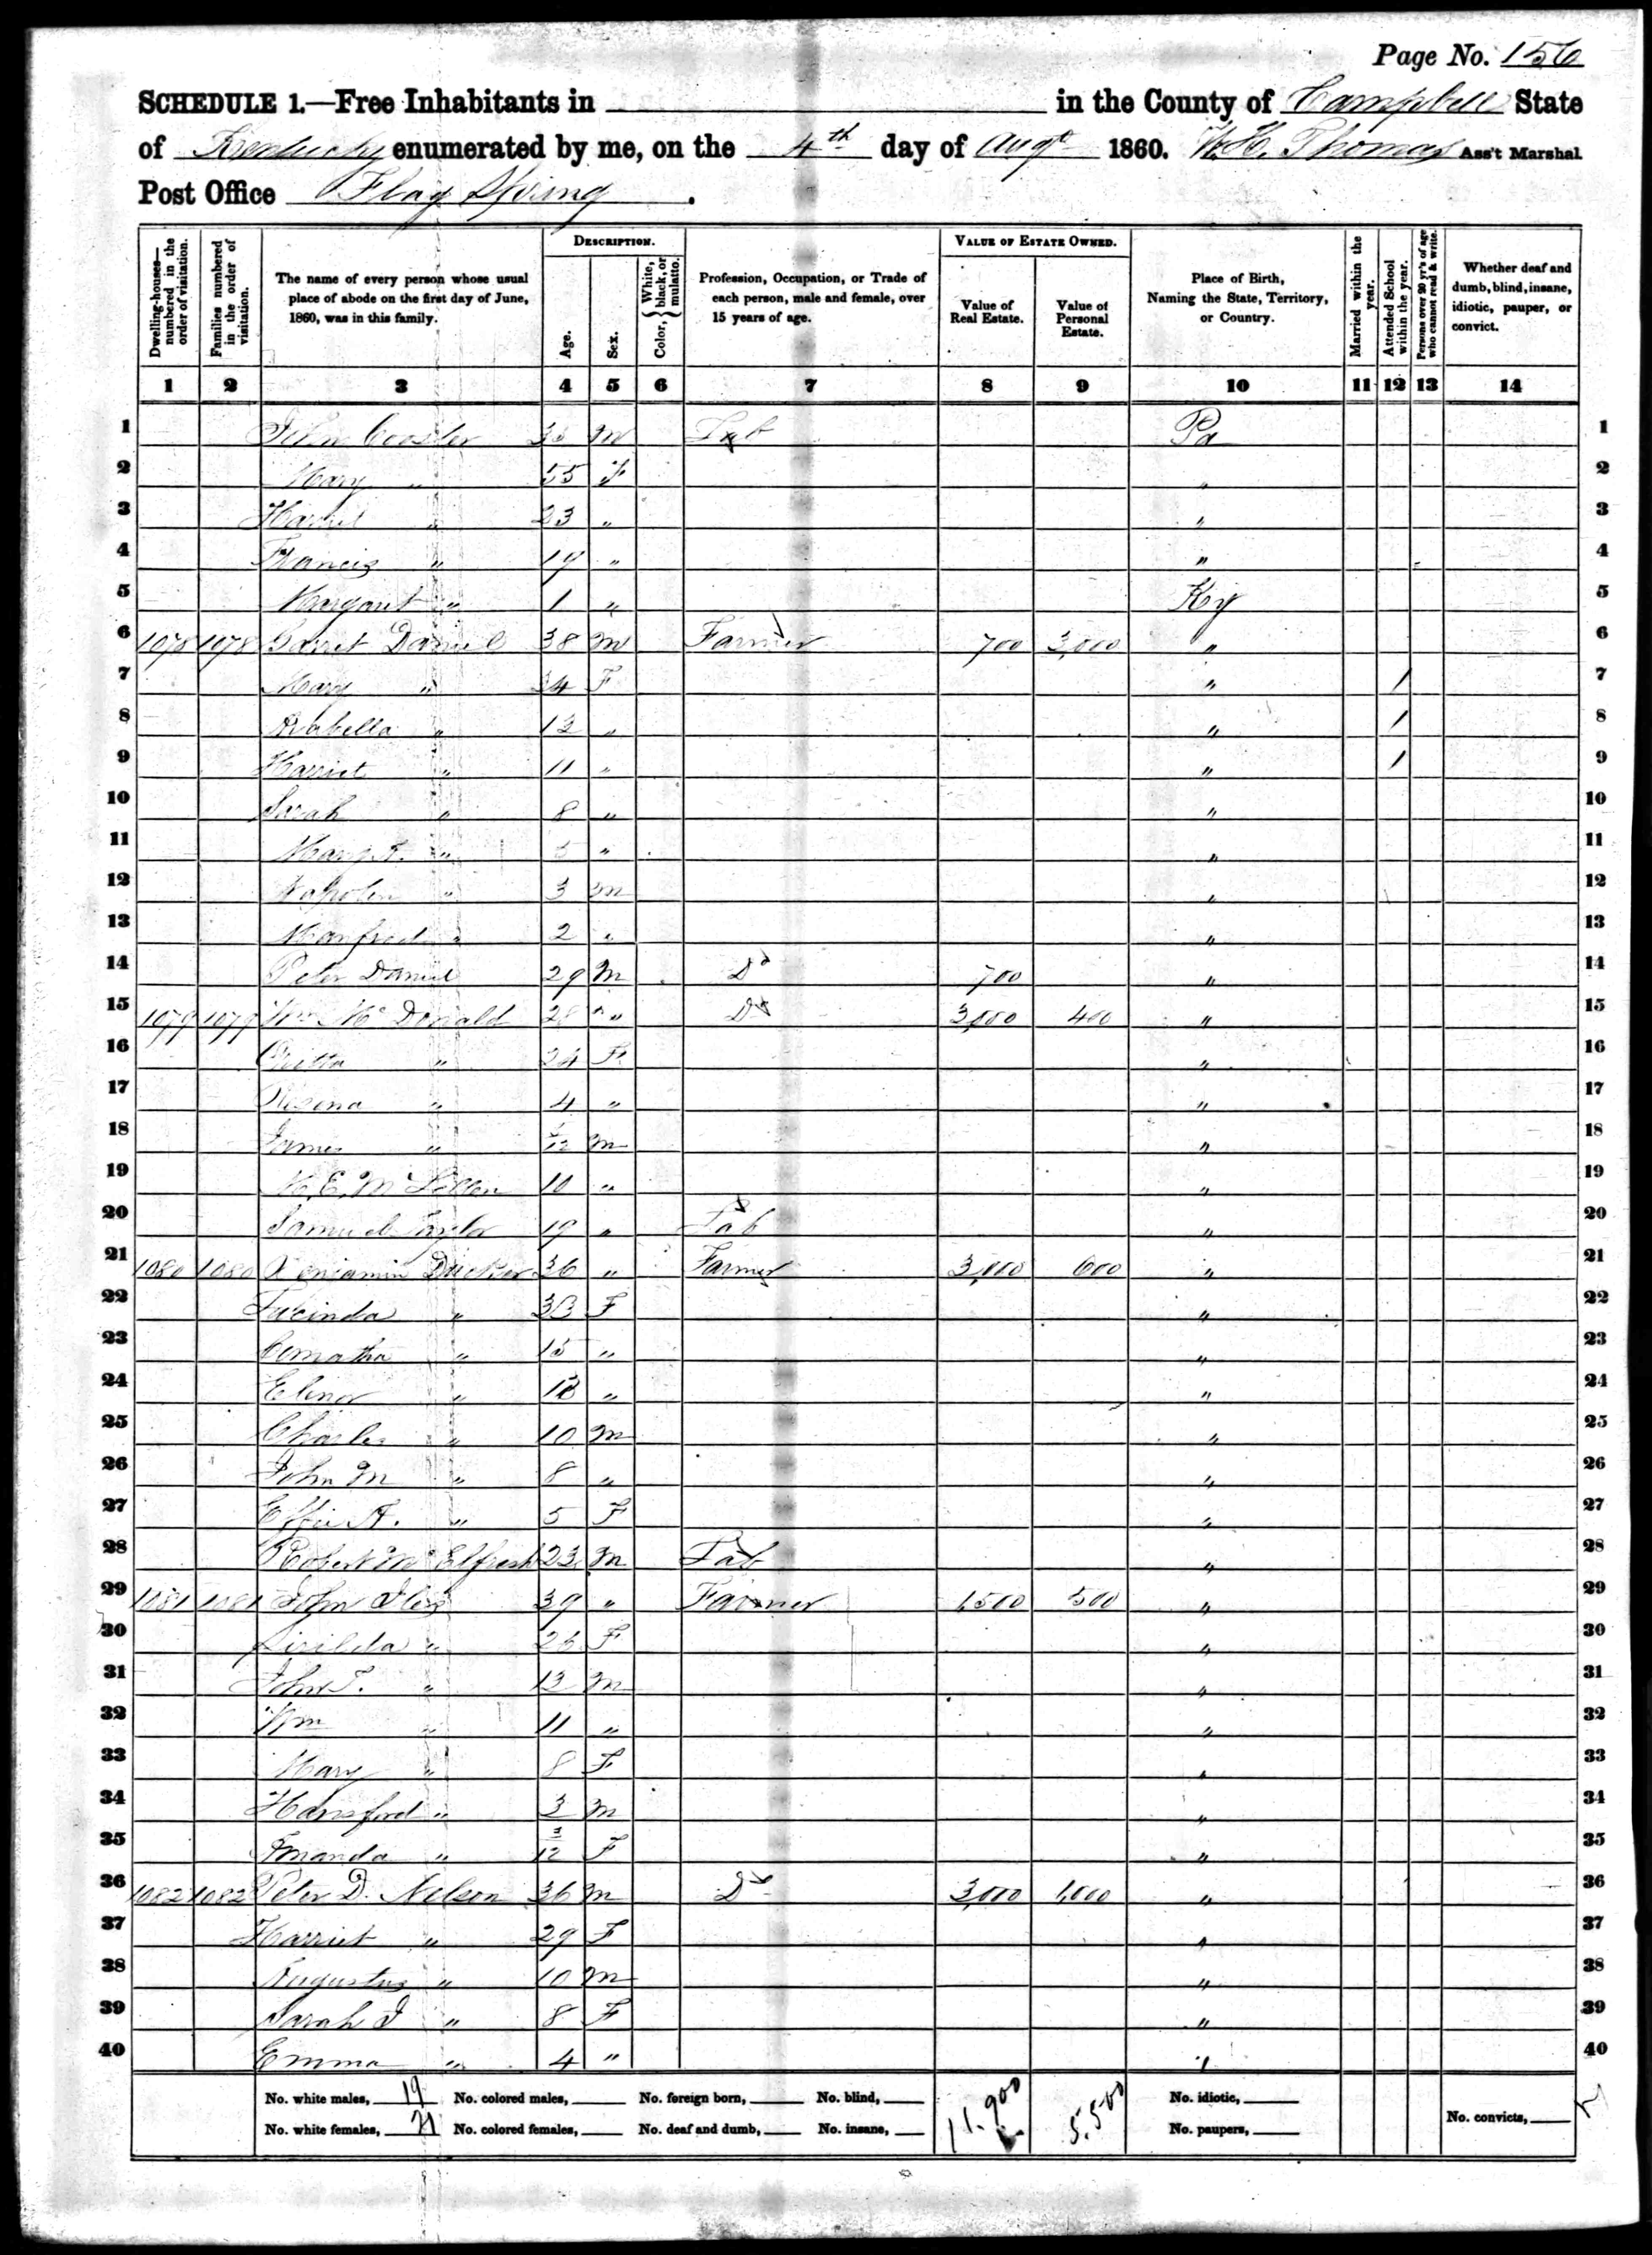 Page No. 156
SCHEDULE 1.—Free Inhabitants in in the County of Campbell State
of Kentucky enumerated by me, on the 4th day of Augt 1860. W. H. Thomas Ass't Marshal
Post Office Flag Spring.
DESCRIPTION. VALUE OF ESTATE OWNED.
Dwelling-houses—numbered in the order of visitation. Families numbered in the order of visitation. The name of every person whose usual place of abode on the first day of June, 1860, was in this family. Age. Sex. Color, { White, black, or mulatto. Profession, Occupation, or Trade of each person, male and female, over 15 years of age. Value of Real Estate. Value of Personal Estate. Place of Birth, Naming the State, Territory, or Country. Married within the year. Attended School within the year. Persons over 20 y'rs of age who cannot read & write. Whether deaf and dumb, blind, insane, idiotic, pauper, or convict.
1 2 3 4 5 6 7 8 9 10 11 12 13 14
1 John M Lab Pa 1
2 Mary " 55 F " 2
3 " 23 " " 3
4 Francis " 19 " " 4
5 Margaret " 1 " Ky 5
6 1078 1078 Garret Daniel 38 M Farmer 700 3,000 " 6
7 Mary " 34 F " / 7
8 Arabella " 13 " " / 8
9 Harriet " 11 " " / 9
10 Sarah " 8 " " 10
11 Mary " 5 " " 11
12 Napolen " 3 M " 12
13 Manfred " 2 " " 13
14 Peter Daniel 29 M Do 700 " 14
15 1079 1079 Wm McDonald 28 " Do 3,000 400 " 15
16 " 24 F " 16
17 " 4 " " 17
18 James " M " 18
19 10 " " 19
20 Samuel Taylor 19 " Lab " 20
21 1080 1080 Benjamin Ducker 36 " Farmer 3,000 600 " 21
22 Lucinda " 33 F " 22
23 " 15 " " 23
24 Elinor " 13 " " 24
25 Charles " 10 M " 25
26 John M " 8 " " 26
27 Effie A. " 5 F " 27
28 Robert McElfresh 23 M Lab " 28
29 1081 1081 John Iles 39 " Farmer 1,500 500 " 29
30 " 26 F " 30
31 John T. " 13 M " 31
32 Wm " 11 " " 32
33 Mary " 8 F " 33
34 Hansford " 3 M " 34
35 Amanda " 3/12 F " 35
36 1082 1082 Peter D. Nelson 36 M Do 3,000 1,000 " 36
37 Harriet " 29 F " 37
38 Augustus " 10 M " 38
39 Sarah J " 8 F " 39
40 Emma " 4 " " 40
No. white males, 19 No. colored males, No. foreign born, No. blind, 11.900 5.500 No. idiotic,
No. white females, 21 No. colored females, No. deaf and dumb, No. insane, No. paupers, No. convicts,